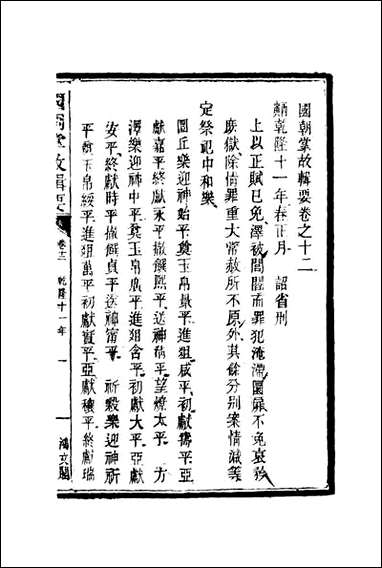 國朝掌故輯要卷之十二
乾隆十一年春正月　詔省刑
上以正賦已免澤被閭閻而罪犯淹滯囹圄不免哀矜
庶獄除情罪重大常赦所不原外其餘分別案情減等
定祭祀中和樂
圜丘樂迎神始平奠玉帛景平進俎咸平初獻壽平亞
獻嘉平終獻永平撤饌熙平送神清平望燎太平　方
澤樂迎神中平奠玉帛廣平進俎含平初獻大平亞獻
安平終獻時平撤饌貞平送神寧平　祈穀樂迎神祈
平奠玉帛綏平進俎萬平初獻寶平亞獻穰平終獻瑞
國朝掌故輯要
卷十二　乾隆十一年　一
鴻文閣